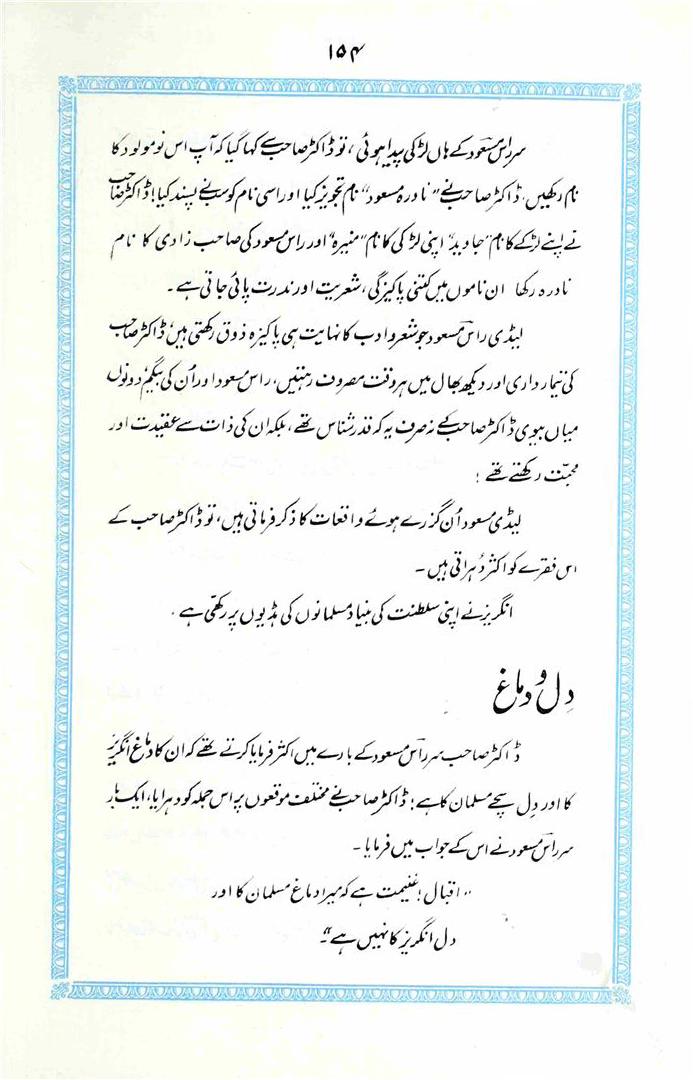 ۱۵۴
سر راس مسعود کے ہاں لڑکی پیدا ہوئی، تو ڈاکٹر صاحب سے کہا گیا کہ آپ اس نومولود کا
نام رکھیں. ڈاکٹر صاحب نے "نادرہ مسعود" نام تجویز کیا اور اسی نام کو سب نے پسند کیا! ڈاکٹر صاحب
نے اپنے لڑکے کا نام "جاوید" اپنی لڑکی کا نام "منیرہ" اور راس مسعود کی صاحب زادی کا نام
نادرہ رکھا ان ناموں میں کتنی پاکیزگی، شعریت اور ندرت پائی جاتی ہے۔
لیڈی راس مسعود جو شعر و ادب کا نہایت ہی پاکیزہ ذوق رکھتی ہیں، ڈاکٹر صاحب
کی تیمار داری اور دیکھ بھال میں ہر وقت مصروف رہتیں، راس مسعود اور اُن کی بیگم، دونوں
میاں بیوی ڈاکٹر صاحب کے نہ صرف یہ کہ قدر شناس تھے، بلکہ ان کی ذات سے عقیدت اور
محبّت رکھتے تھے!
لیڈی مسعود اُن گزرے ہوئے واقعات کا ذکر فرماتی ہیں، تو ڈاکٹر صاحب کے
اس فقرے کو اکثر دُہراتی ہیں۔
انگریز نے اپنی سلطنت کی بنیاد مسلمانوں کی ہڈیوں پر رکھی ہے.
دِل و دماغ
ڈاکٹر صاحب سر راس مسعود کے بارے میں اکثر فرمایا کرتے تھے کہ ان کا دماغ انگریز
کا اور دِل سچے مسلمان کا ہے؛ ڈاکٹر صاحب نے مختلف موقعوں پر اس جملہ کو دہرایا، ایک بار
سر راس مسعود نے اس کے جواب میں فرمایا۔
"اقبال! غنیمت ہے کہ میرا دماغ مسلمان کا اور
دل انگریز کا نہیں ہے"۔